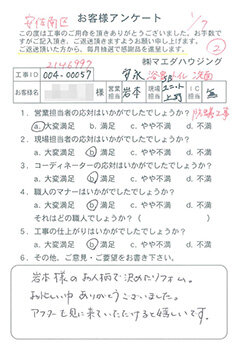 安佐南区
お客様アンケート
1/7
この度は工事のご用命を頂きありがとうございました。お手数で
すがご記入頂き、ご返送頂きますようお願い申し上げます。
ご返送頂いた方から、毎月抽選で感謝品を進呈します。
②
2146997
㈱マエダハウジング
工事ID 004-00057
浴室 トイレ 洗面
お客様名 様 営業担当 岩本 現場担当 IC担当 無
1. 営業担当者の応対はいかがでしたでしょうか?
a. 大変満足 b. 満足 c. やや不満 d. 不満
2. 現場担当者の応対はいかがでしたでしょうか?
a. 大変満足 b. 満足 c. やや不満 d. 不満
3. コーディネーターの応対はいかがでしたでしょうか?
a. 大変満足 b. 満足 c. やや不満 d. 不満
4. 職人のマナーはいかがでしたでしょうか?
a. 大変満足 b. 満足 c. やや不満 d. 不満
それはどの職人でしょうか? ( )
5. 工事の仕上がりはいかがでしたでしょうか?
a. 大変満足 b. 満足 c. やや不満 d. 不満
6. その他、ご意見・ご要望をお書き下さい。
岩本様のお人柄で決めたリフォーム。
お忙しい中ありがとうございました。
アフターも見に来ていただけると嬉しいです。